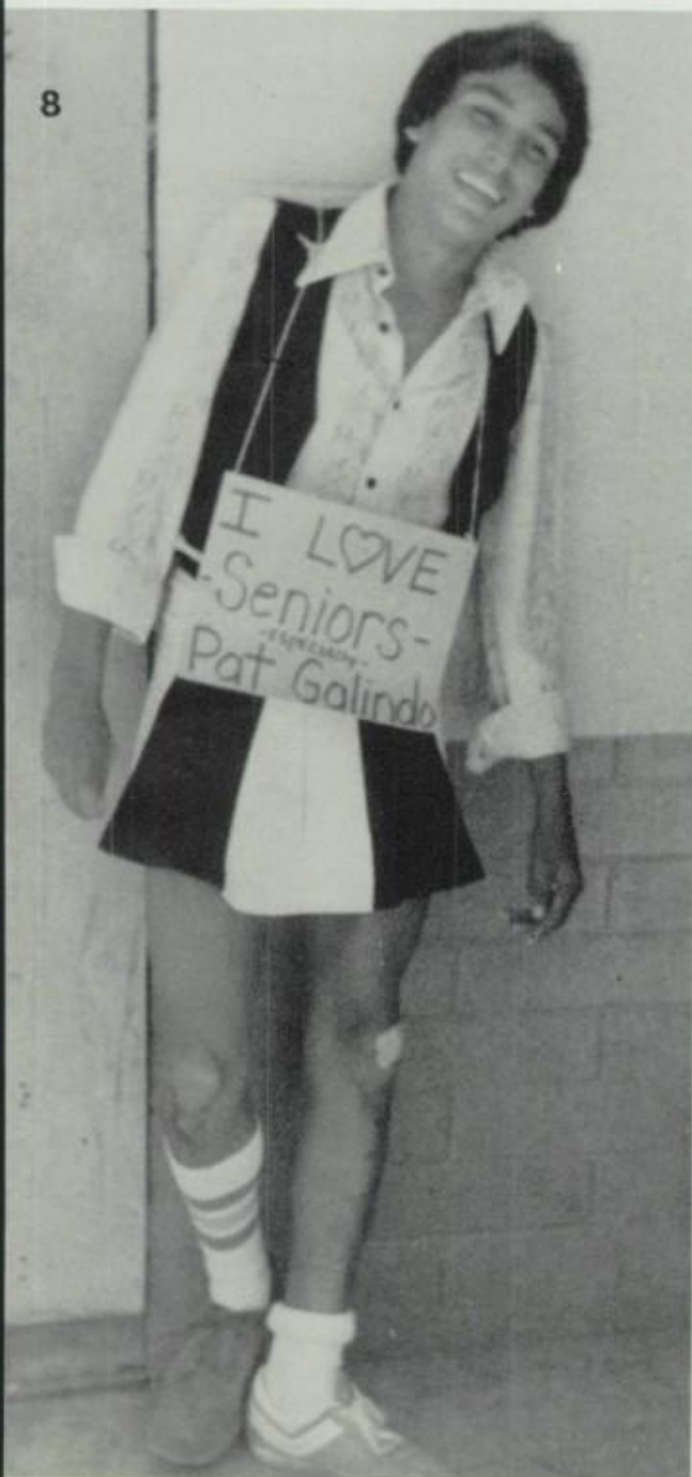 8
I LOVE
-Seniors-
-especially-
Pat Galindo